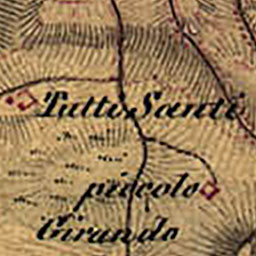 Tutti Santi
piccolo
Girando